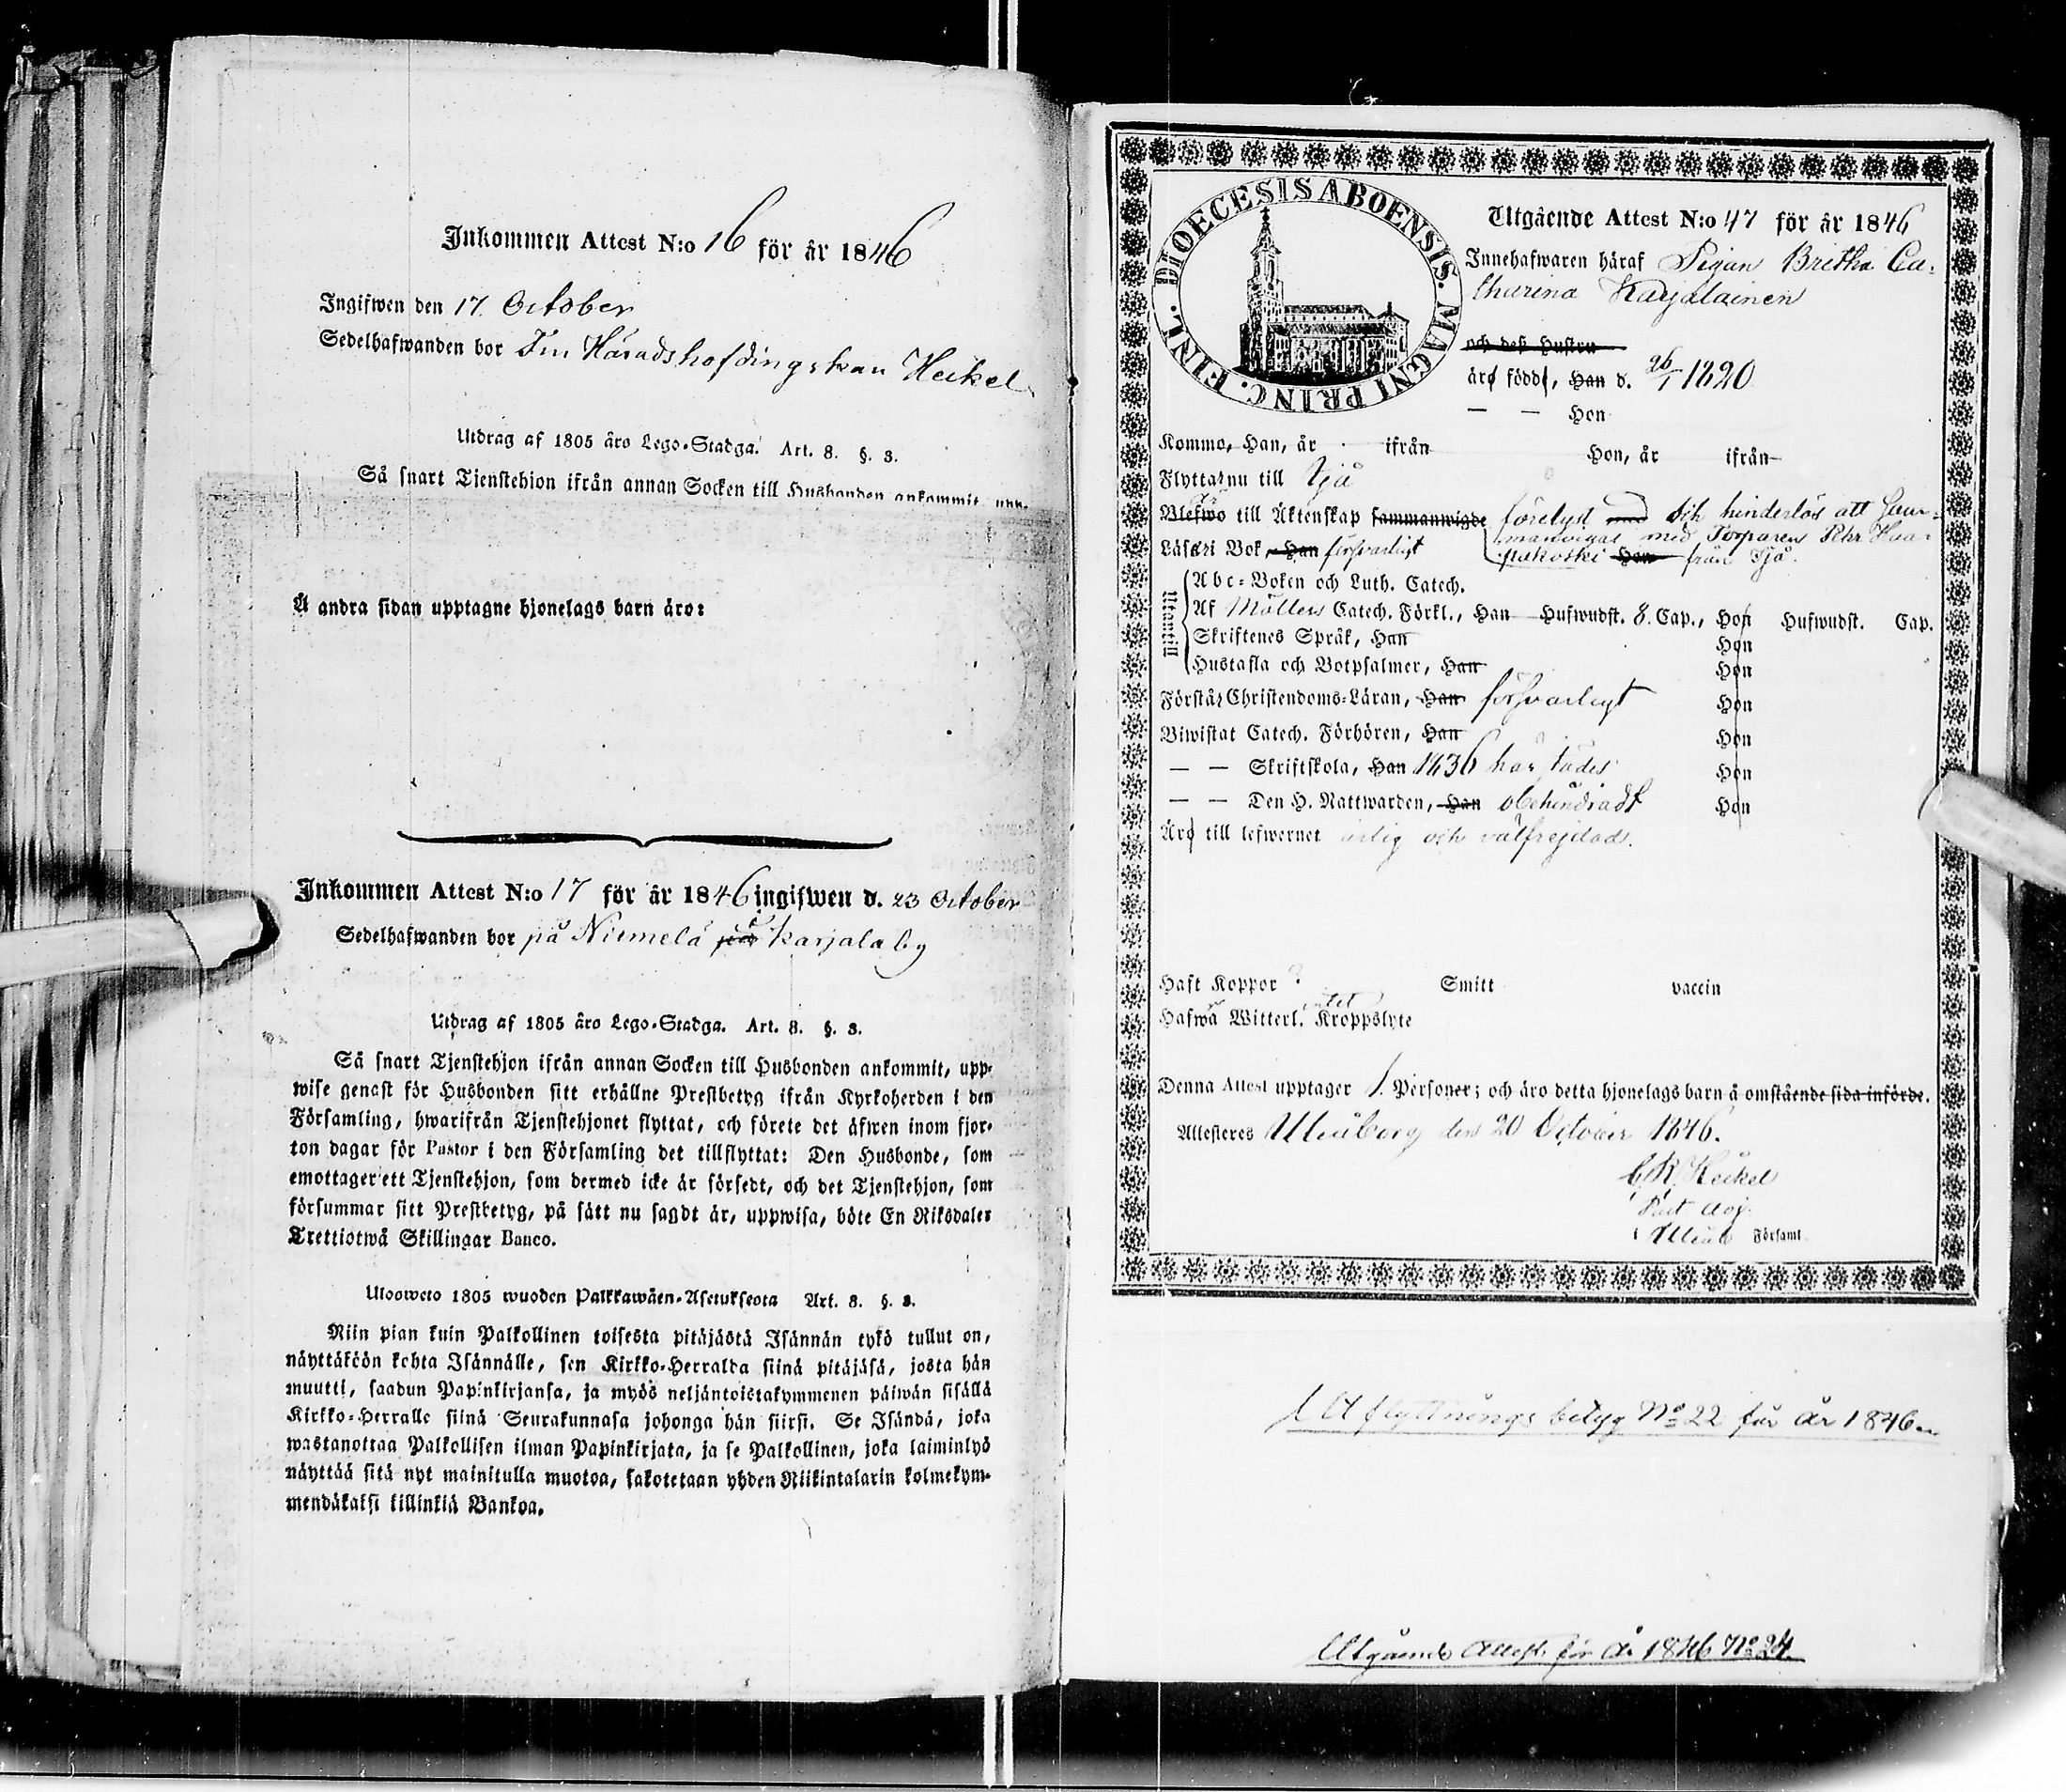 Inkommen Attest N:o 16 för år 1846
Ingifwen den 17 October
Sedelhafwanden bor Häradshöfdingskan Heikel
Utdrag af 1805 års Lego-Stadga. Art. 8. §. 3.
Så snart Tjenstehjon ifrån annan Socken till Husbonden ankommit, upp-
Å andra sidan upptagne hjonelags barn äro:
Inkommen Attest N:o 17 för år 1846 ingifwen d. 23 October
Sedelhafwanden bor på Niemelä Karjala by
Utdrag af 1805 års Lego-Stadga. Art. 8. §. 3.
Så snart Tjenstehjon ifrån annan Socken till Husbonden ankommit, upp-
wise genast för Husbonden sitt erhållne Prestbetyg ifrån Kyrkoherden i den
Församling, hwarifrån Tjenstehjonet flyttat, och förete det äfwen inom fjor-
ton dagar för Pastor i den Församling det tillflyttat: Den Husbonde, som
emottager ett Tjenstehjon, som dermed icke är försedt, och det Tjenstehjon, som
försummar sitt Prestbetyg, på sätt nu sagdt är, uppwisa, böte En Riksdaler
Trettiotwå Skillingar Banco.
Ulosweto 1805 wuoden Palkkawäen-Asetuksesta Art. 8. §. 3.
Niin pian kuin Palkollinen toisesta pitäjästä Isännän tykö tullut on,
näyttäköön kohta Isännälle, sen Kirkko-Herralda siinä pitäjäsä, josta hän
muutti, saadun Papinkirjansa, ja myös neljäntoistakymmenen päiwän sisällä
Kirkko-Herralle siinä Seurakunnasa johonga hän siirsi. Se Isändä, joka
wastanottaa Palkollisen ilman Papinkirjata, ja se Palkollinen, joka laiminlyö
näyttää sitä nyt mainitulla muotoa, sakotetaan yhden Riikintalarin kolmekym-
mendäkaksi killinkiä Bankoa.
DIOECESIS ABOENSIS. MAGNI PRINC. FINL.
Utgående Attest N:o 47 för år 1846
Innehafwaren häraf Pigan Bretha Ca-
tharina Karjalainen
och deß Hustru
äro född, Han d. 26/1 1820
— — Hon
Kommo, Han, år ifrån Hon, år ifrån
Flyttar nu till Ijå
Blefwo till Äktenskap sammanwigde förelyst och hinderlös att sam-
manvigas med Torparen Pehr Haa-
Läser i Bok, Han försvarligt
pakoski från Ijå.
Utantill
Abc-Boken och Luth. Catech.
Af Möllers Catech. Förkl., Han Hufwudst. 8 Cap., Hon Hufwudst. Cap.
Skriftenes Språk, Han Hon
Hustafla och Botpsalmer, Han Hon
Förstår Christendoms-Läran, Han försvarligt Hon
Biwistat Catech. Förhören, Han Hon
— — Skriftskola, Han 1836 härstädes Hon
— — Den H. Nattwarden, Han obehindradt Hon
Äro till lefwernet ärlig och välfrejdad.
Haft Koppor ? Smitt vaccin
Hafwa Witterl. intet Kroppslyte
Denna Attest upptager 1. Personer; och äro detta hjonelags barn å omstående sida införde.
Attesteras Uleåborg den 20 October 1846.
C. R. Heikel
Past. Adj.
i Uleåb Församl.
Utflyttnings betyg No 22 för år 1846
Utgående Attest för år 1846 No 24